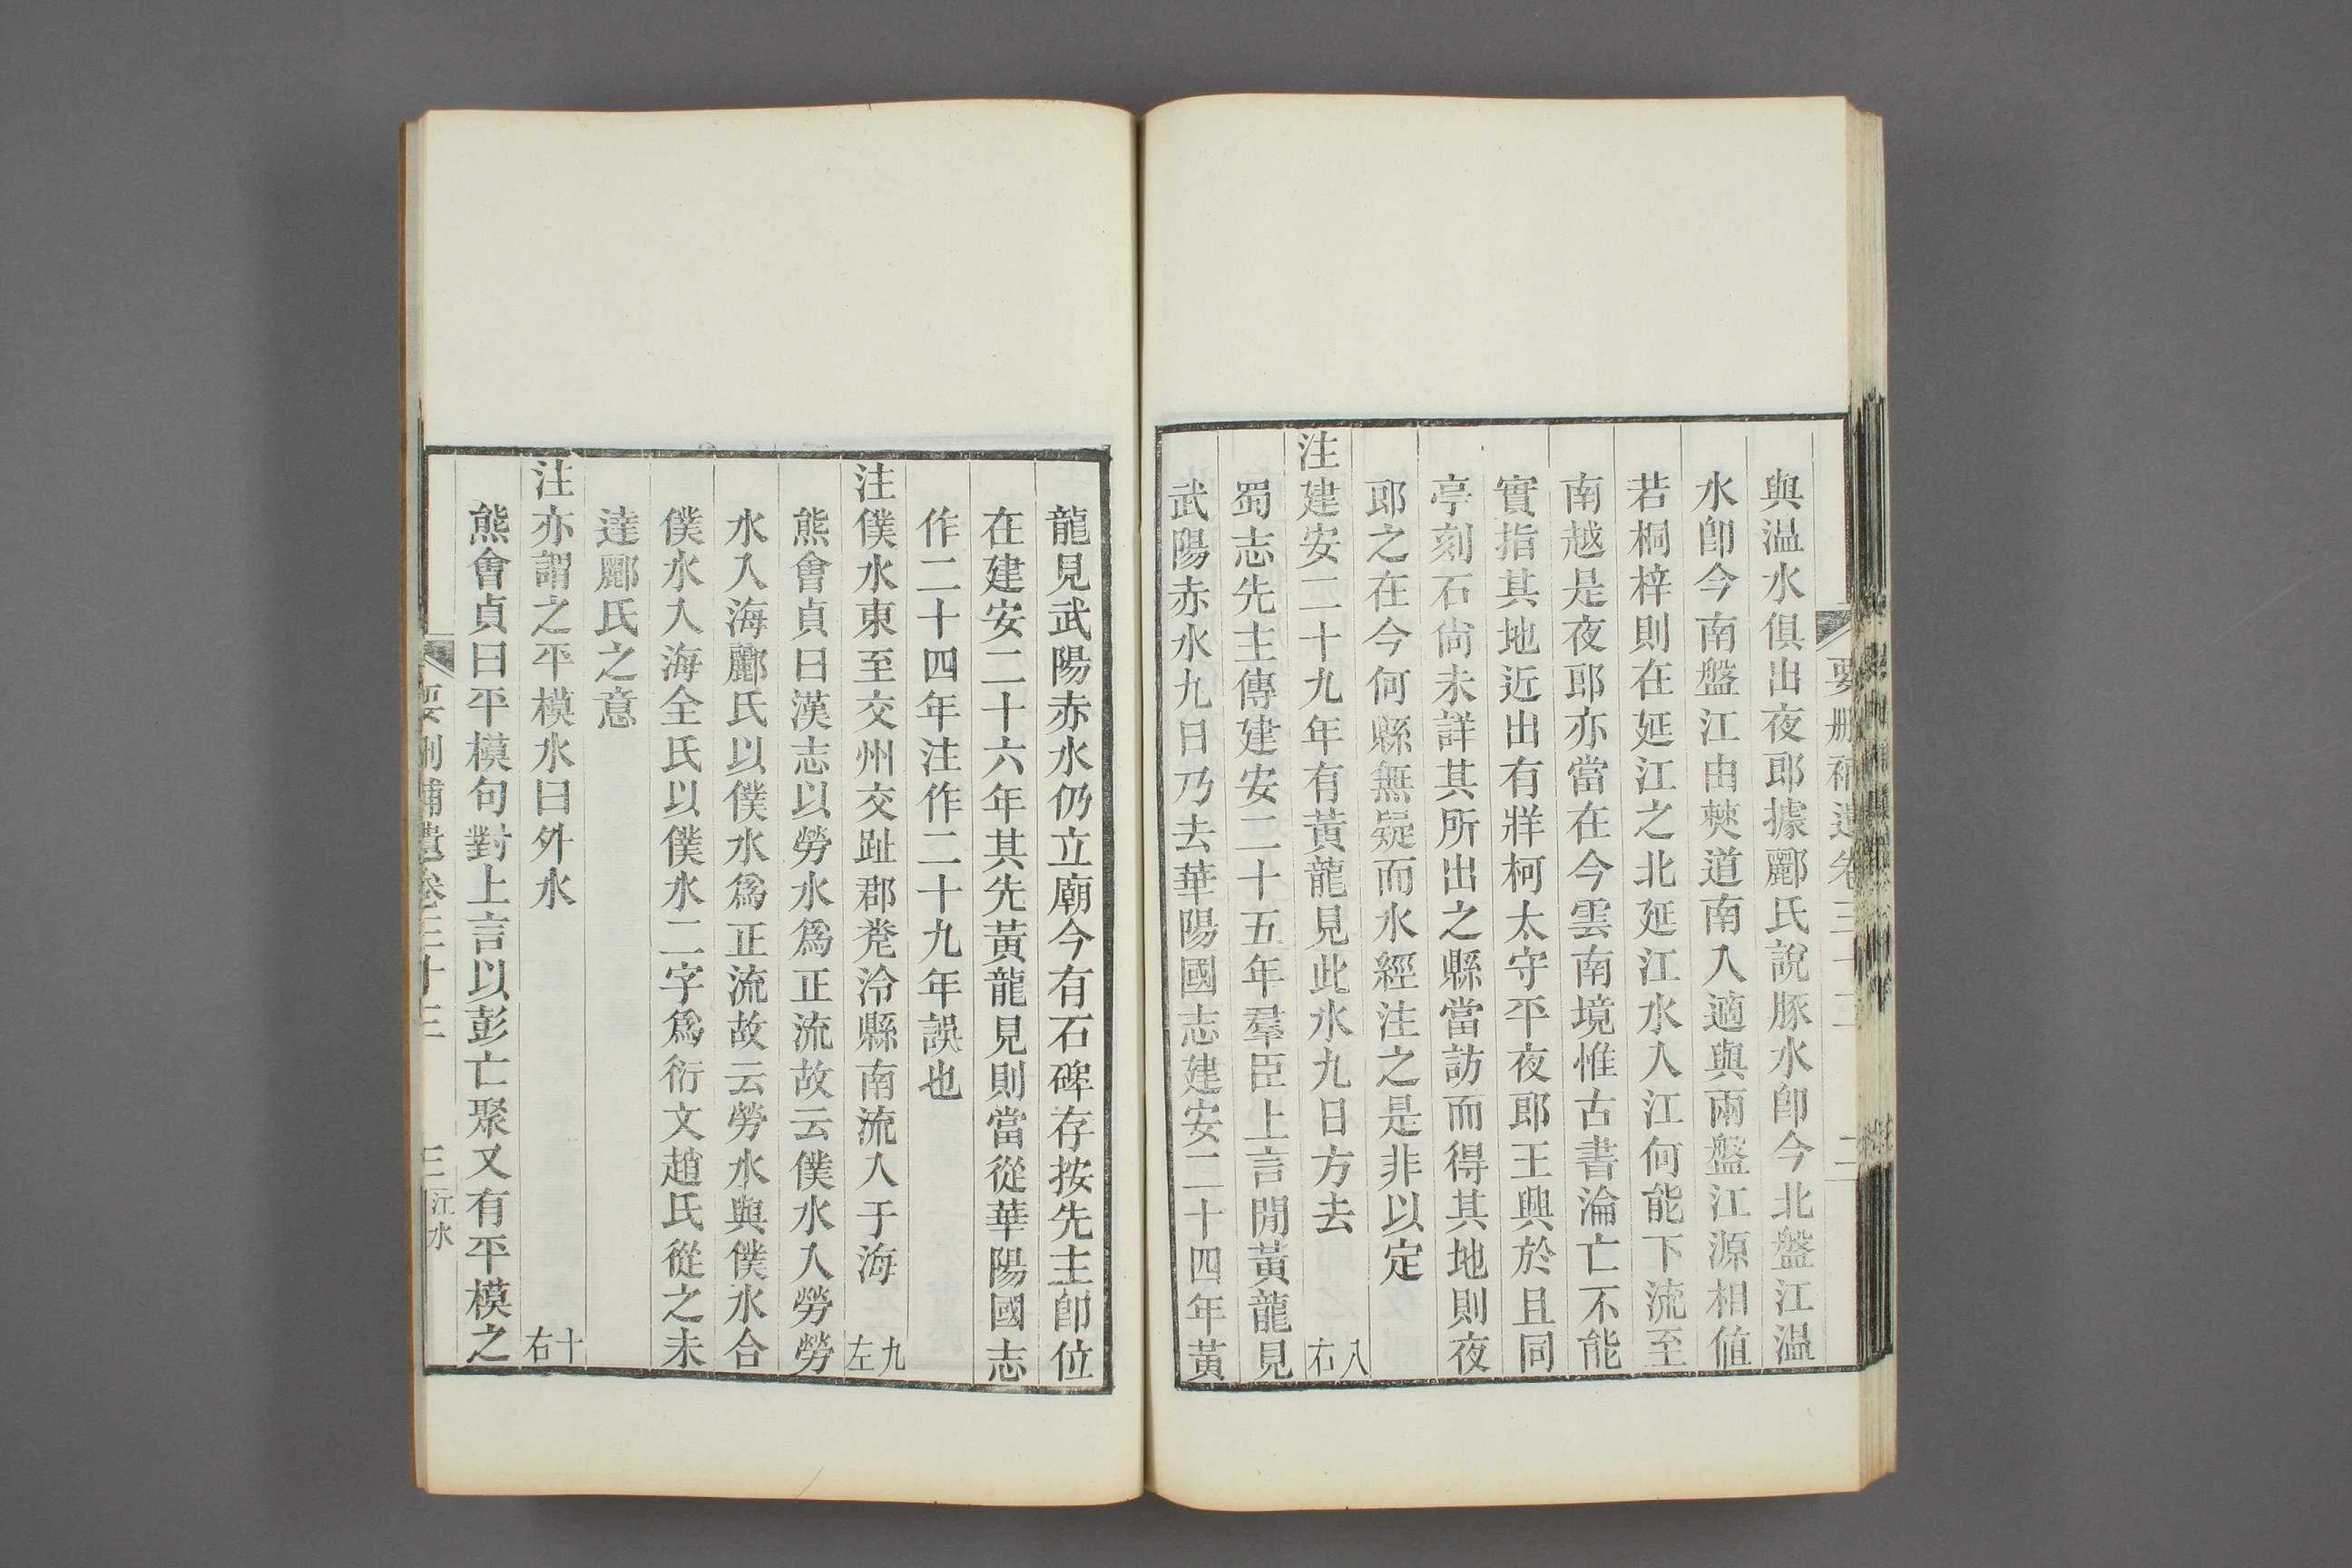 要刪補遺卷三十三 二
與温水俱出夜郎據酈氏說豚水卽今北盤江温
水卽今南盤江由僰道南入適與兩盤江源相值
若桐梓則在延江之北延江水入江何能下流至
南越是夜郎亦當在今雲南境惟古書淪亡不能
實指其地近出有牂柯太守平夜郎王興於且同
亭刻石尙未詳其所出之縣當訪而得其地則夜
郎之在今何縣無疑而水經注之是非以定
注建安二十九年有黃龍見此水九日方去 八右
蜀志先主傳建安二十五年羣臣上言閒黃龍見
武陽赤水九日乃去華陽國志建安二十四年黃
龍見武陽赤水仍立廟今有石碑存按先主卽位
在建安二十六年其先黃龍見則當從華陽國志
作二十四年注作二十九年誤也
注僕水東至交州交趾郡𣳾泠縣南流入于海 九左
熊會貞曰漢志以勞水爲正流故云僕水入勞勞
水入海酈氏以僕水爲正流故云勞水與僕水合
僕水入海全氏以僕水二字爲衍文趙氏從之未
達酈氏之意
注亦謂之平模水曰外水 十右
熊會貞曰平模句對上言以彭亡聚又有平模之
要刪補遺卷三十三 三 江水